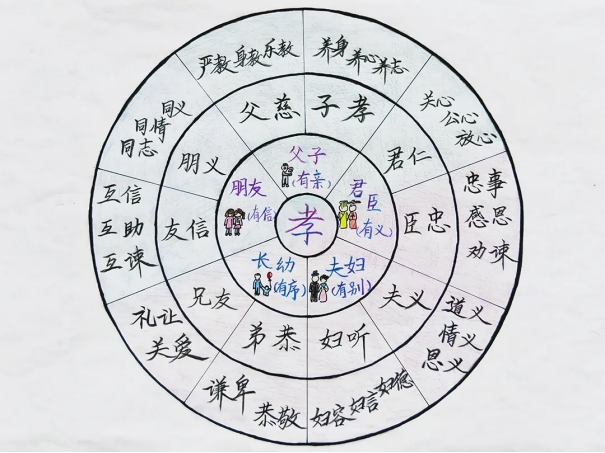 孝
父子
(有亲)
君
臣
(有义)
夫妇
(有别)
长幼
(有序)
朋友
(有信)
父慈
子孝
君仁
臣忠
夫义
妇听
弟恭
兄友
友信
朋义
严教 身教 乐教
养身 养心 养志
关心
公心
放心
忠事
感恩
劝谏
道义
情义
恩义
妇容 妇言 妇德
谦卑
恭敬
礼让
关爱
互信
互助
互谏
同义
同情
同志